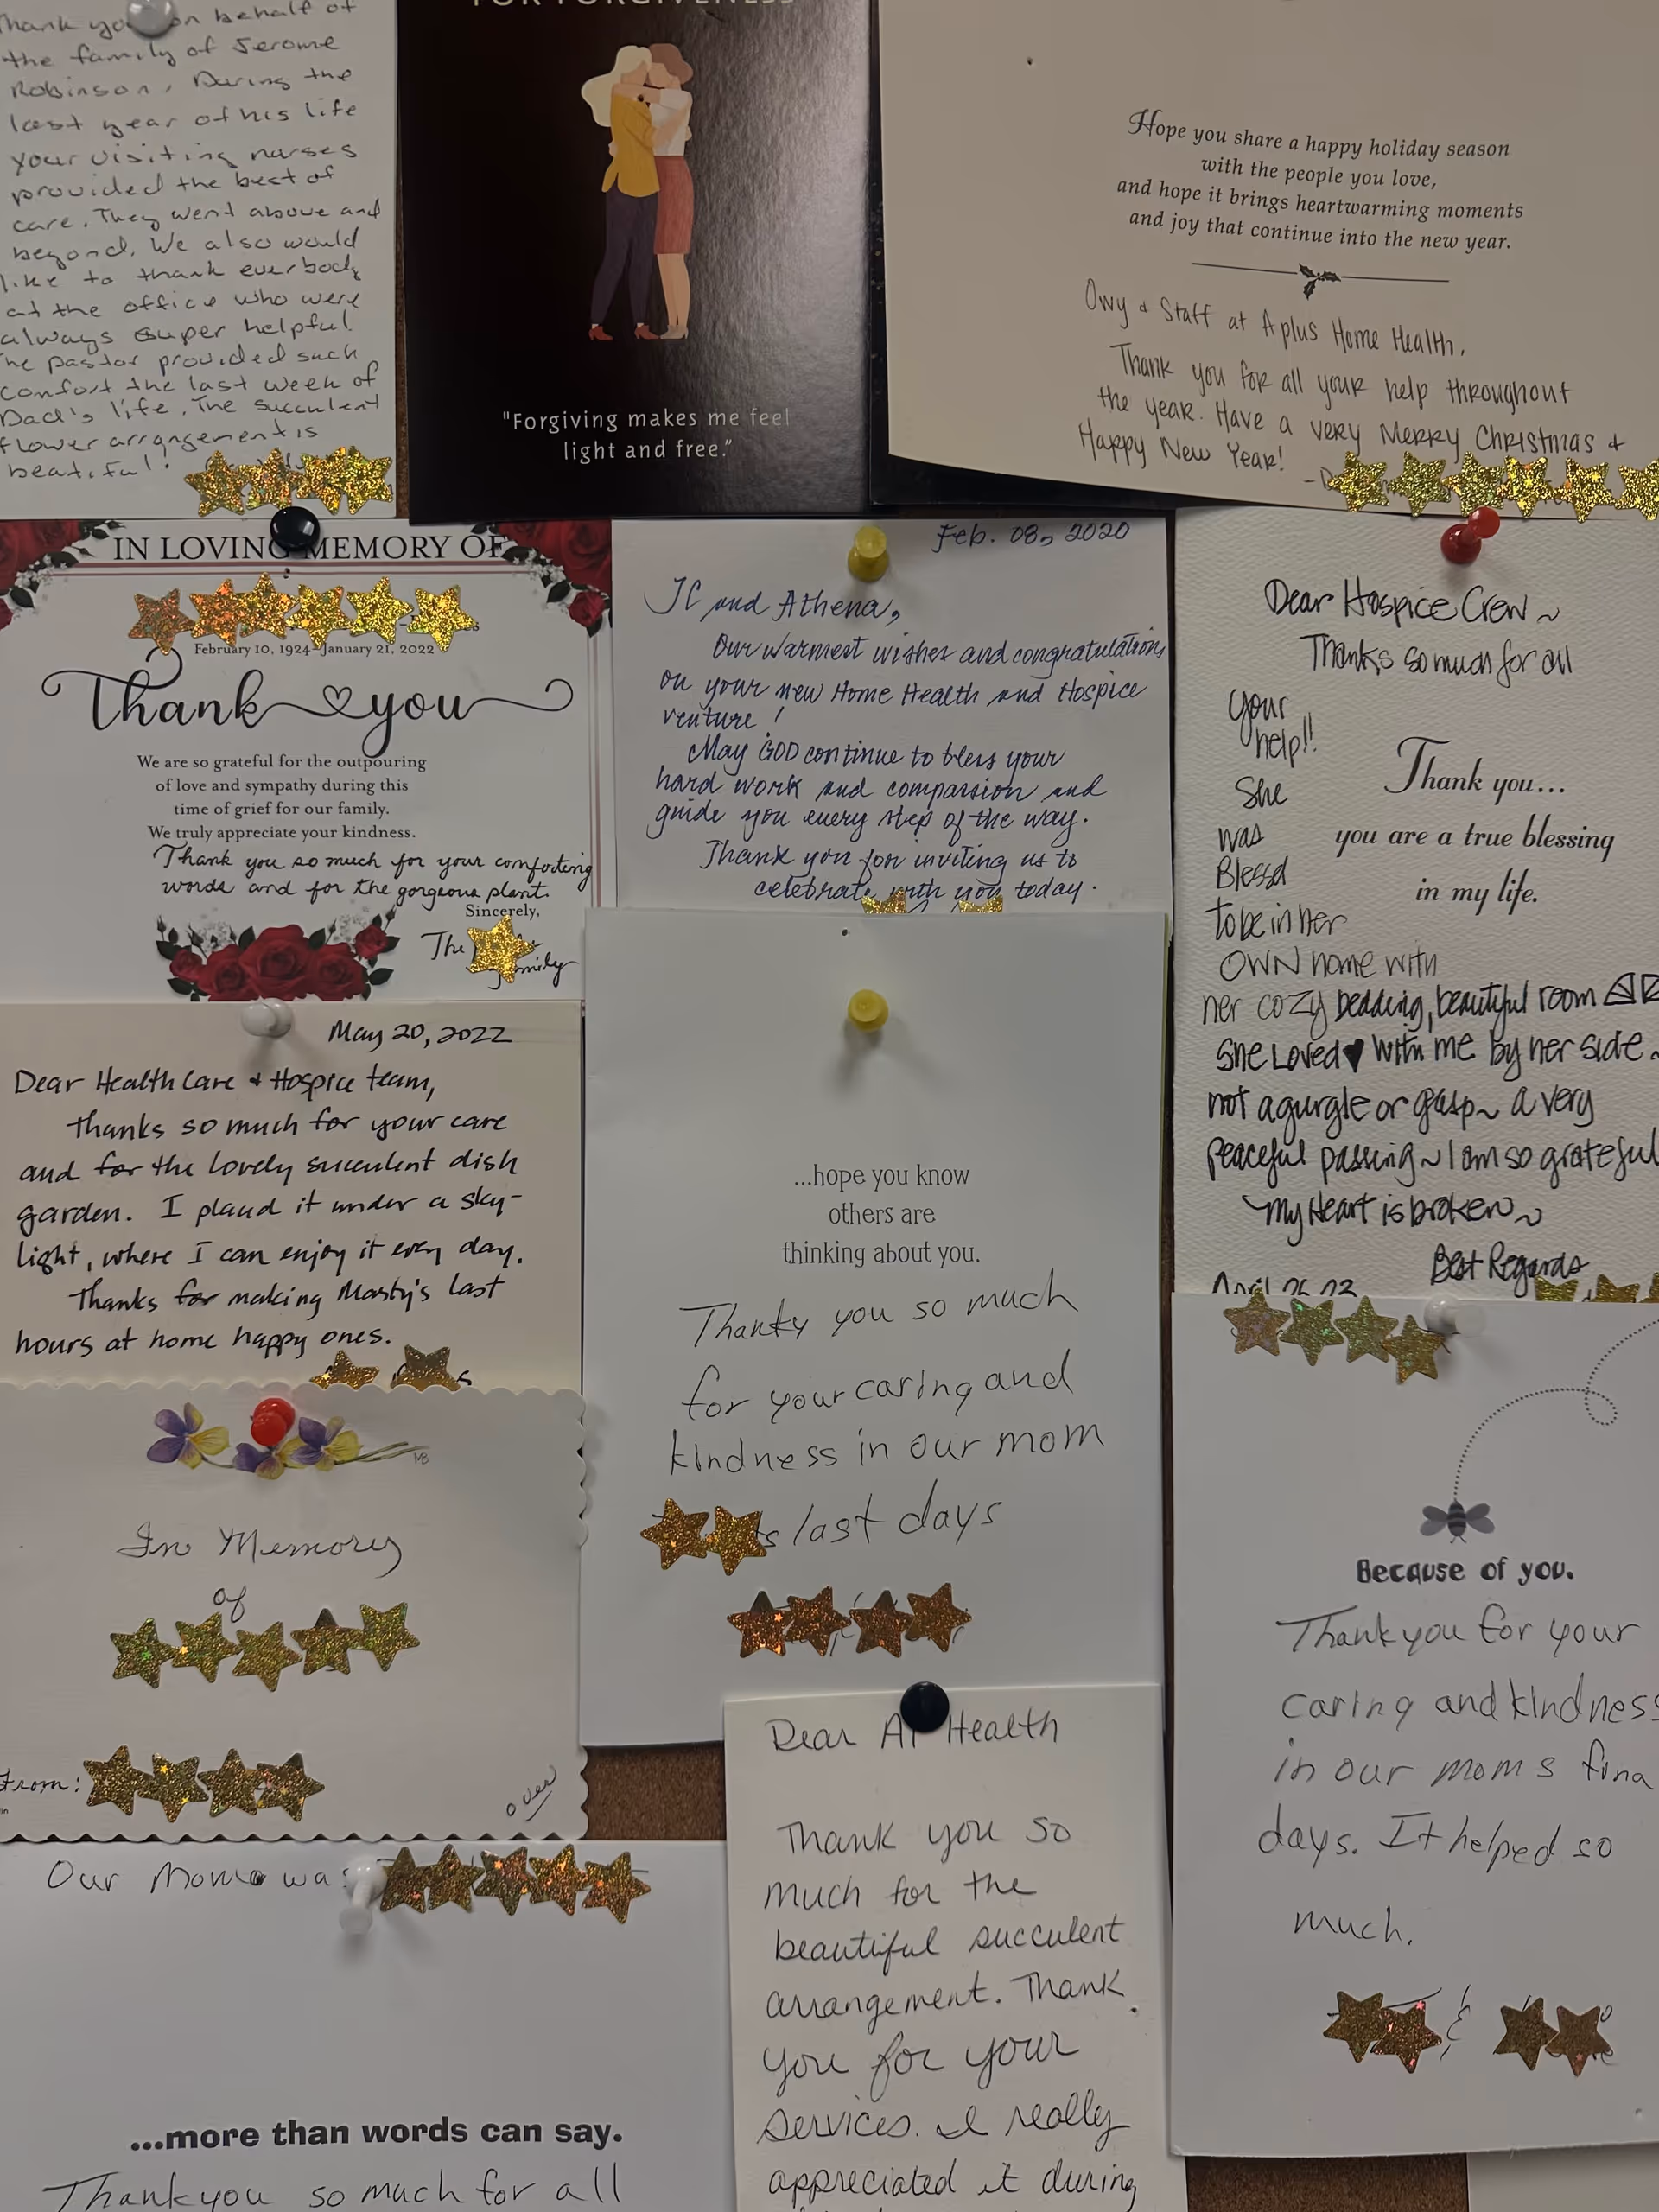 Thank you on behalf of
the family of Jerome
Robinson. During the
last year of his life
your visiting nurses
provided the best of
care. They went above and
beyond. We also would
like to thank everbody
at the office who were
always super helpful.
The pastor provided such
comfort the last week of
Dad's life. The succulent
flower arrangement is
beatiful.
FOR FORGIVENESS
"Forgiving makes me feel
light and free."
Hope you share a happy holiday season
with the people you love,
and hope it brings heartwarming moments
and joy that continue into the new year.
Owy & Staff at Aplus Home Health,
Thank you for all your help throughout
the year. Have a very Merry Christmas &
Happy New Year!
IN LOVING MEMORY OF
February 10, 1924 - January 21, 2022
Thank you
We are so grateful for the outpouring
of love and sympathy during this
time of grief for our family.
We truly appreciate your kindness.
Thank you so much for your comforting
words and for the gorgeous plant.
Sincerely,
The
Family
Feb. 08, 2020
JC and Athena,
Our warmest wishes and congratulations
on your new Home Health and Hospice
venture!
May GOD continue to bless your
hard work and compassion and
guide you every step of the way.
Thank you for inviting us to
celebrate with you today.
Dear Hospice Crew~
Thanks so much for all
your
help!!
She
was
Blessd
to be in her
OWN home with
her cozy bedding, beautiful room
She Loved♥ with me by her side~
not a gurgle or gasp~ a very
peaceful passing~ I am so grateful
~My Heart is broken~
Best Regards
April 26 23
Thank you...
you are a true blessing
in my life.
May 20, 2022
Dear Health Care & Hospice team,
Thanks so much for your care
and for the lovely succulent dish
garden. I placed it under a sky-
light, where I can enjoy it every day.
Thanks for making Marty's last
hours at home happy ones.
...hope you know
others are
thinking about you.
Thanky you so much
for your caring and
kindness in our mom
last days
MB
In Memory
of
From:
over
Because of you.
Thankyou for your
caring and kindness
in our moms fina
days. It helped so
much.
&
Our Mom was
...more than words can say.
Thankyou so much for all
Dear A1 Health
Thank you so
much for the
beautiful succulent
arrangement. Thank
you for your
services. I really
appreciated it during